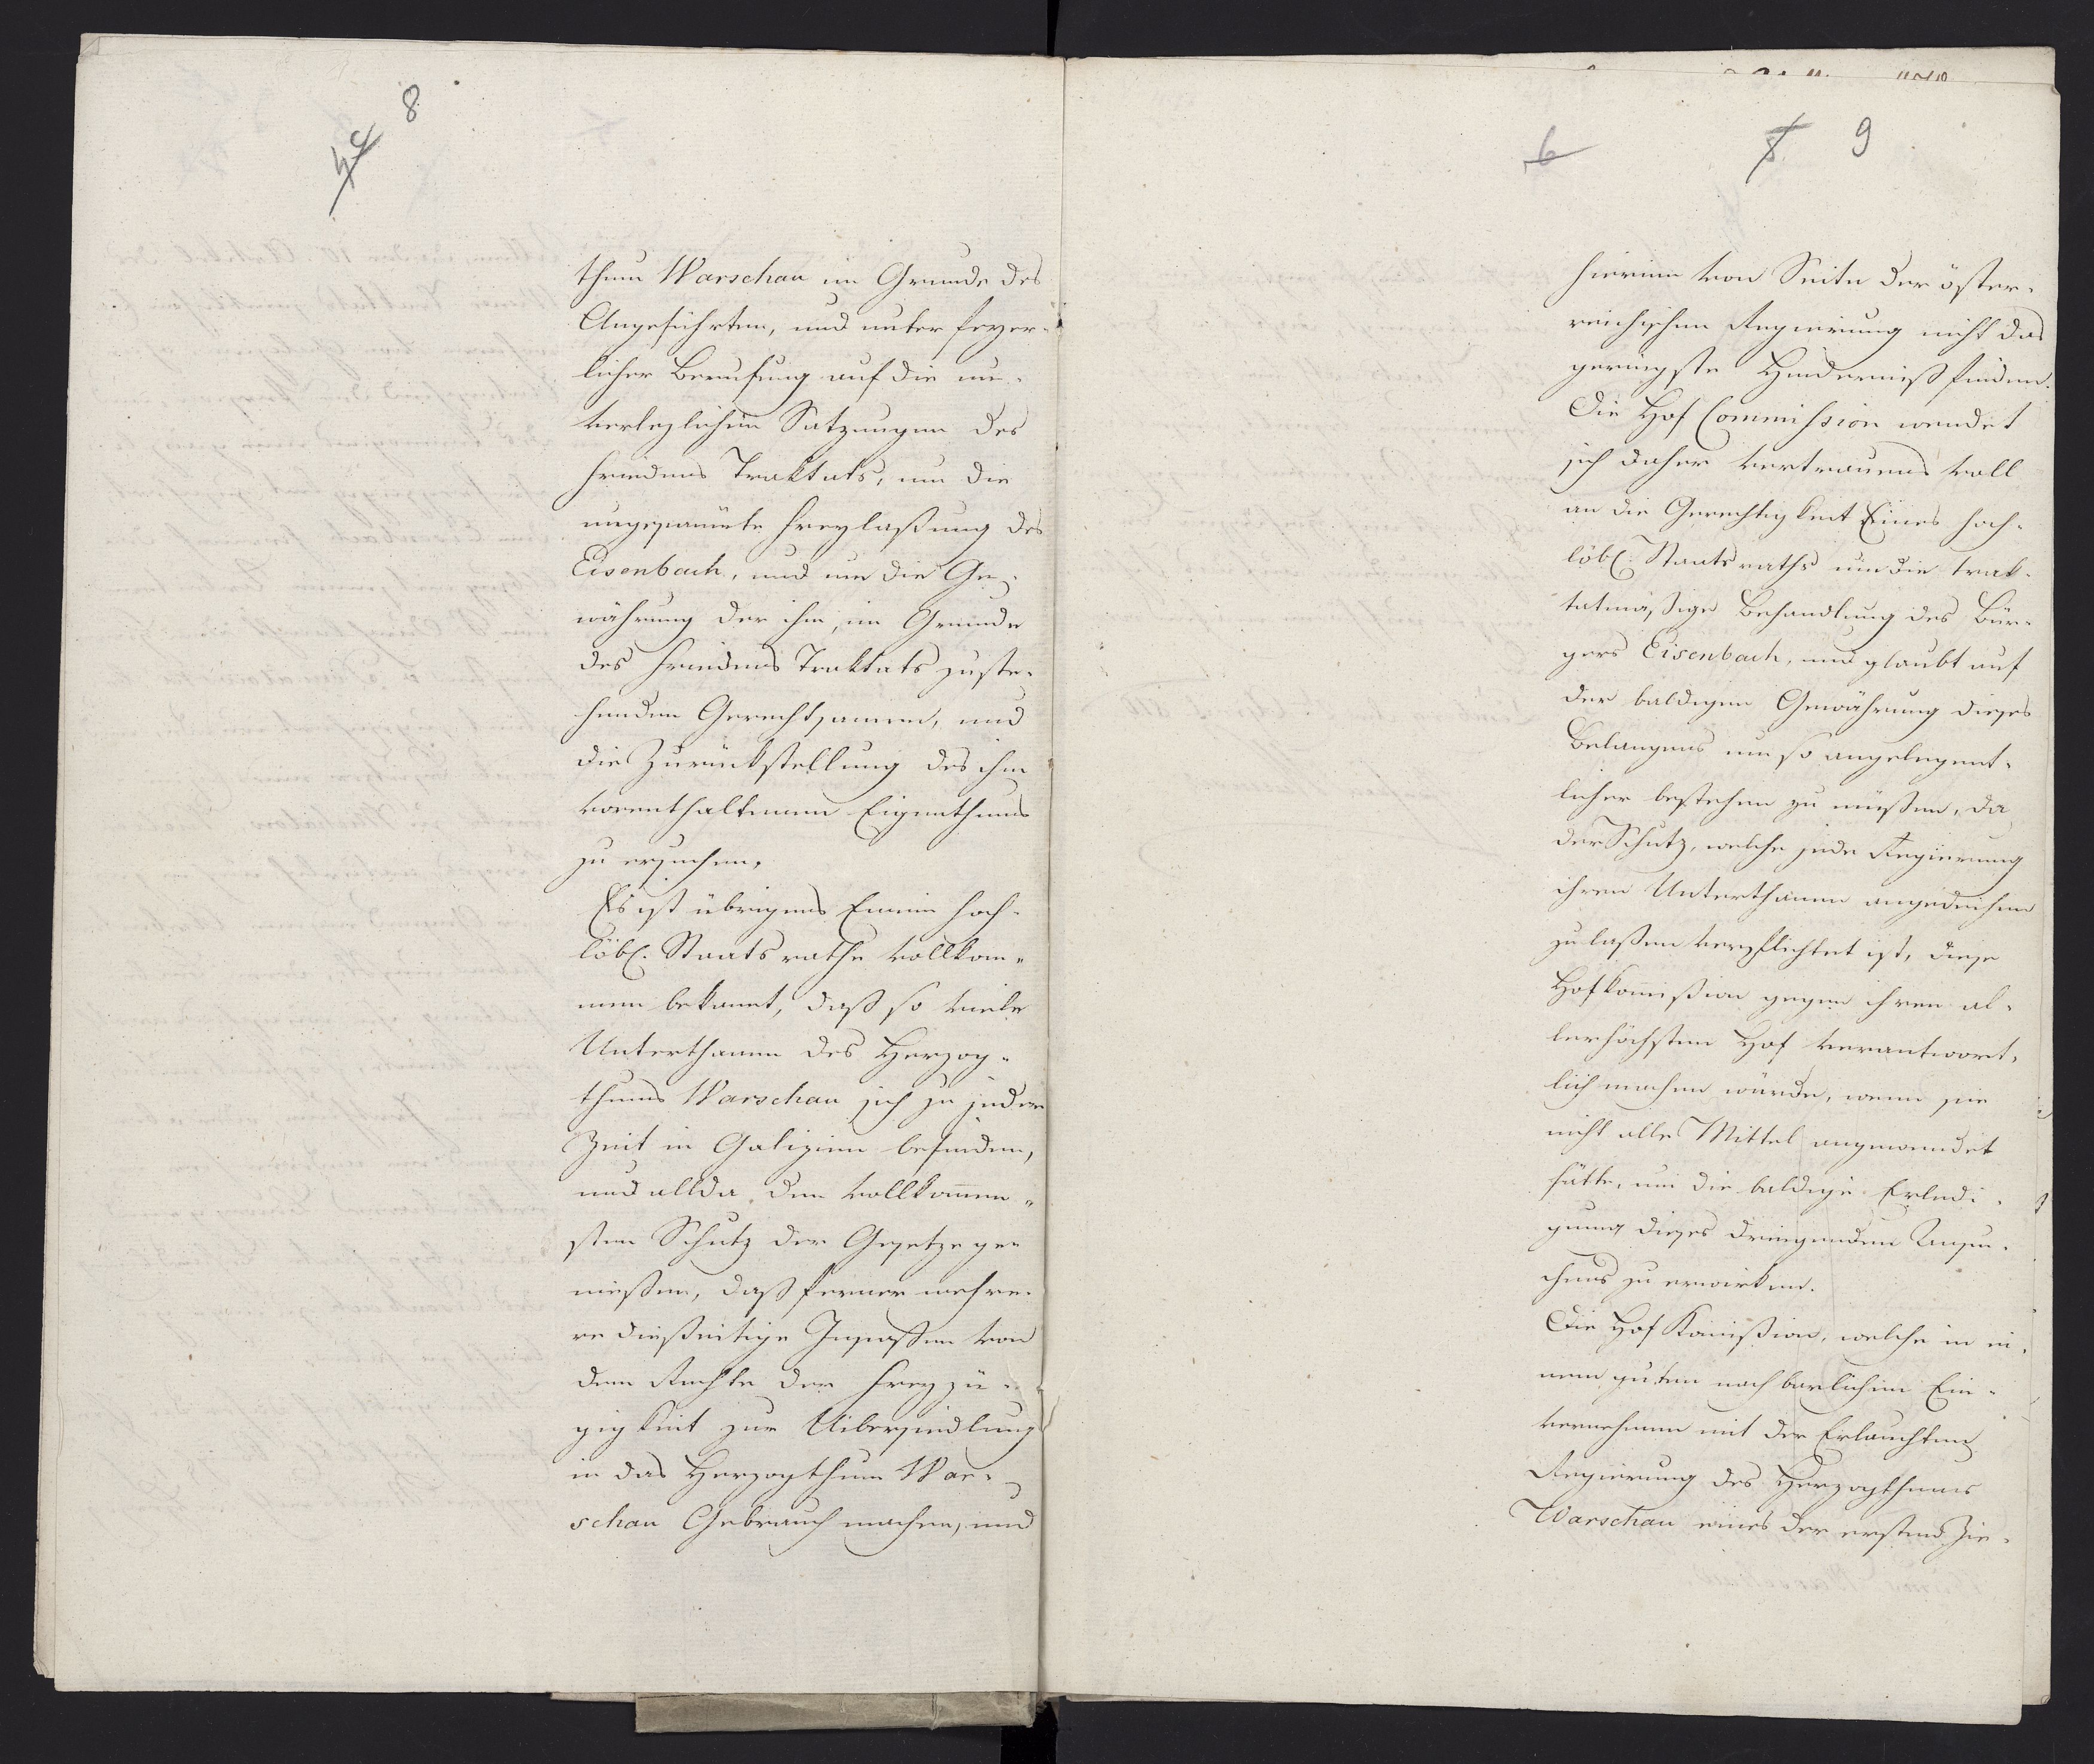 8
thum Warschau im Grunde des
Angeführten, und unter feyer-
licher Berufung auf die un-
verlezlichen Satzungen des
Friedens Traktats, um die
ungesäumte Freylaßung des
Eisenbach, und um die Ge-
währung der ihm, im Grunde
des Friedens Traktats zuste-
henden Gerechtsamen, und
die Zurückstellung des ihm
vorenthaltenen Eigenthums
zu ersuchen.
Es ist übrigens Einem hoch-
löbl. Staatsrathe vollkom-
men bekannt, daß so viele
Unterthanen des Herzog-
thums Warschau sich zu jeder
Zeit in Galizien befinden,
und allda den vollkom̄en-
sten Schutz der Gesetze ge-
nießen, daß ferner mehre-
re dießseitige Insaßen von
dem Rechte der Freyzü-
gigkeit zur Uibersiedlung
in das Herzogthum War-
schau Gebrauch machen, und
6
9
hierinn von Seite der öster-
reichischen Regierung nicht das
geringste Hinderniß finden.
Die Hof Commission wendet
sich daher vertrauens voll
an die Gerechtigkeit Eines hoch-
löbl. Staatsraths um die trak-
tatmäßige Behandlung des Bür-
gers Eisenbach, und glaubt auf
der baldigen Gewährung dieses
Belangens um so angelegent-
licher bestehen zu müßen, da
der Schutz, welche jede Regierung
ihren Unterthanen angedeihen
zu laßen verpflichtet ist, diese
Hofkom̄ißion gegen ihren al-
lerhöchsten Hof verantwort-
lich machen würde, wenn sie
nicht alle Mittel angewendet
hätte, um die baldige Erledi-
gung dieses dringenden Ansu-
chens zu erwirken.
Die Hof Kom̄ißion, welche in ei-
nem guten nachbarlichen Ein-
vernehmen mit der Erlauchten
Regierung des Herzogthums
Warschau eines der ersten Zie-